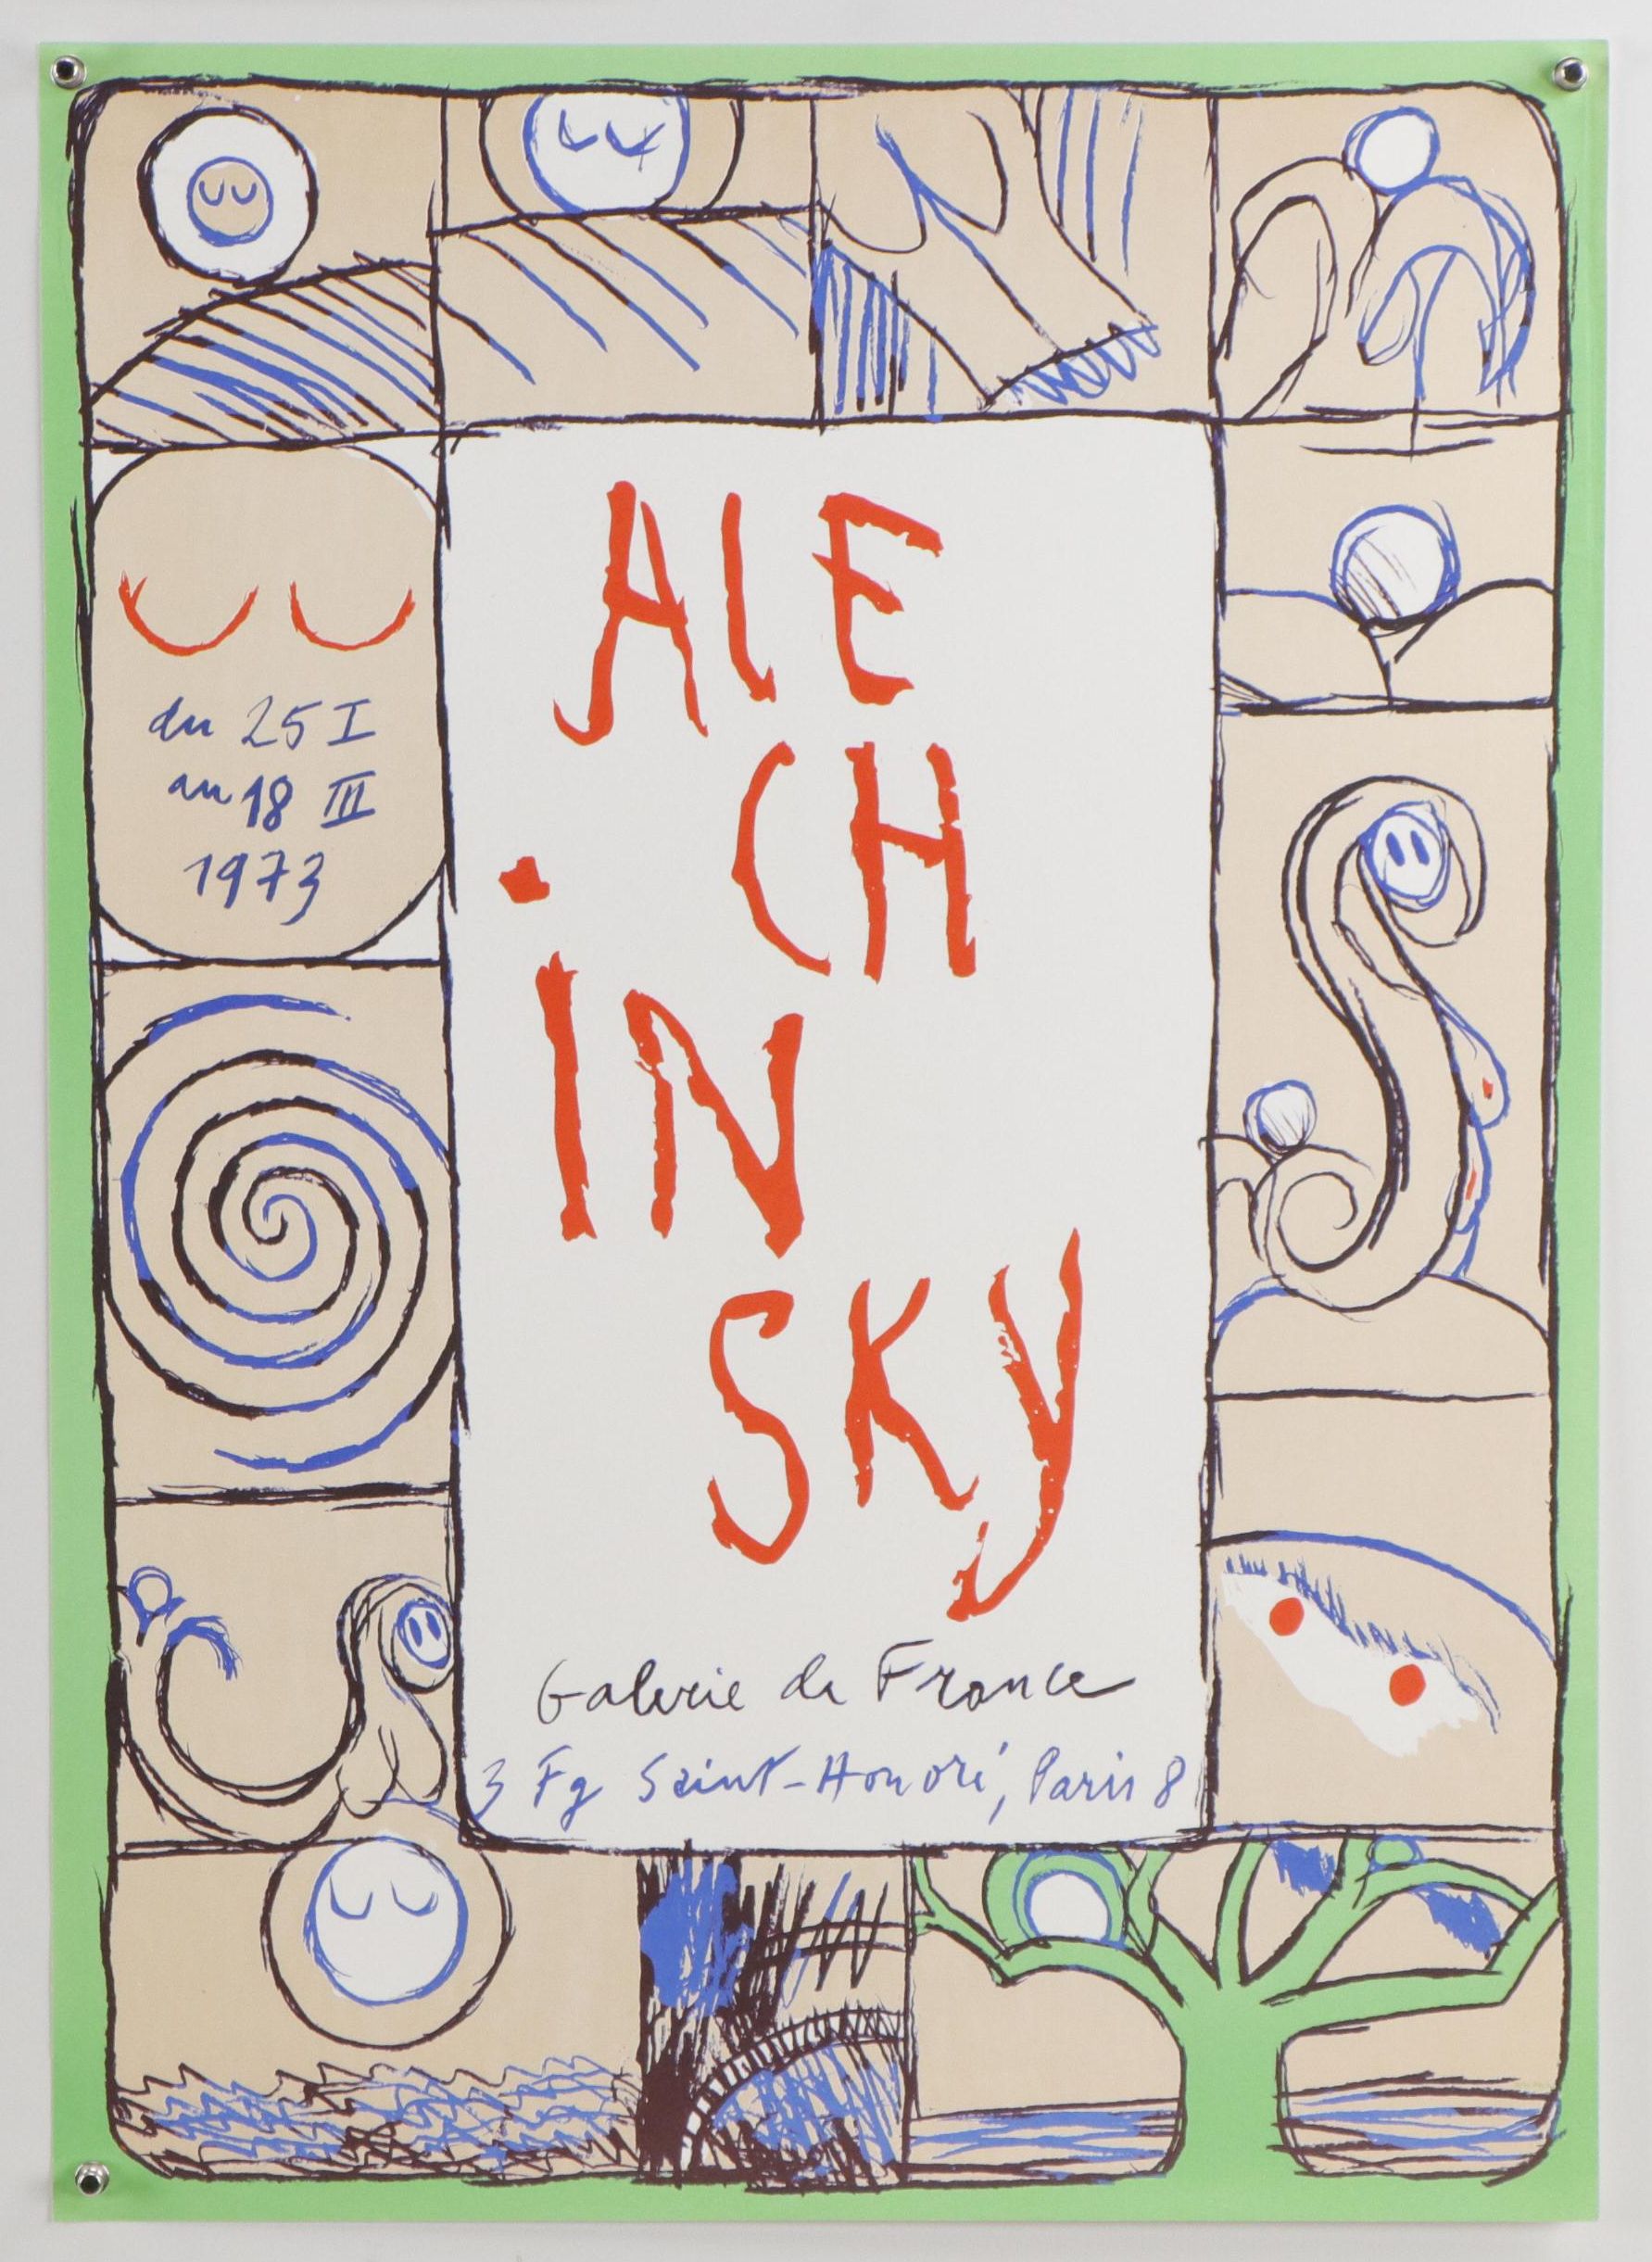 du 25 I
au 18 III
1973
AlE
CH
iN
SKy
Galerie de France
3 Fg Saint-Honoré, Paris 8